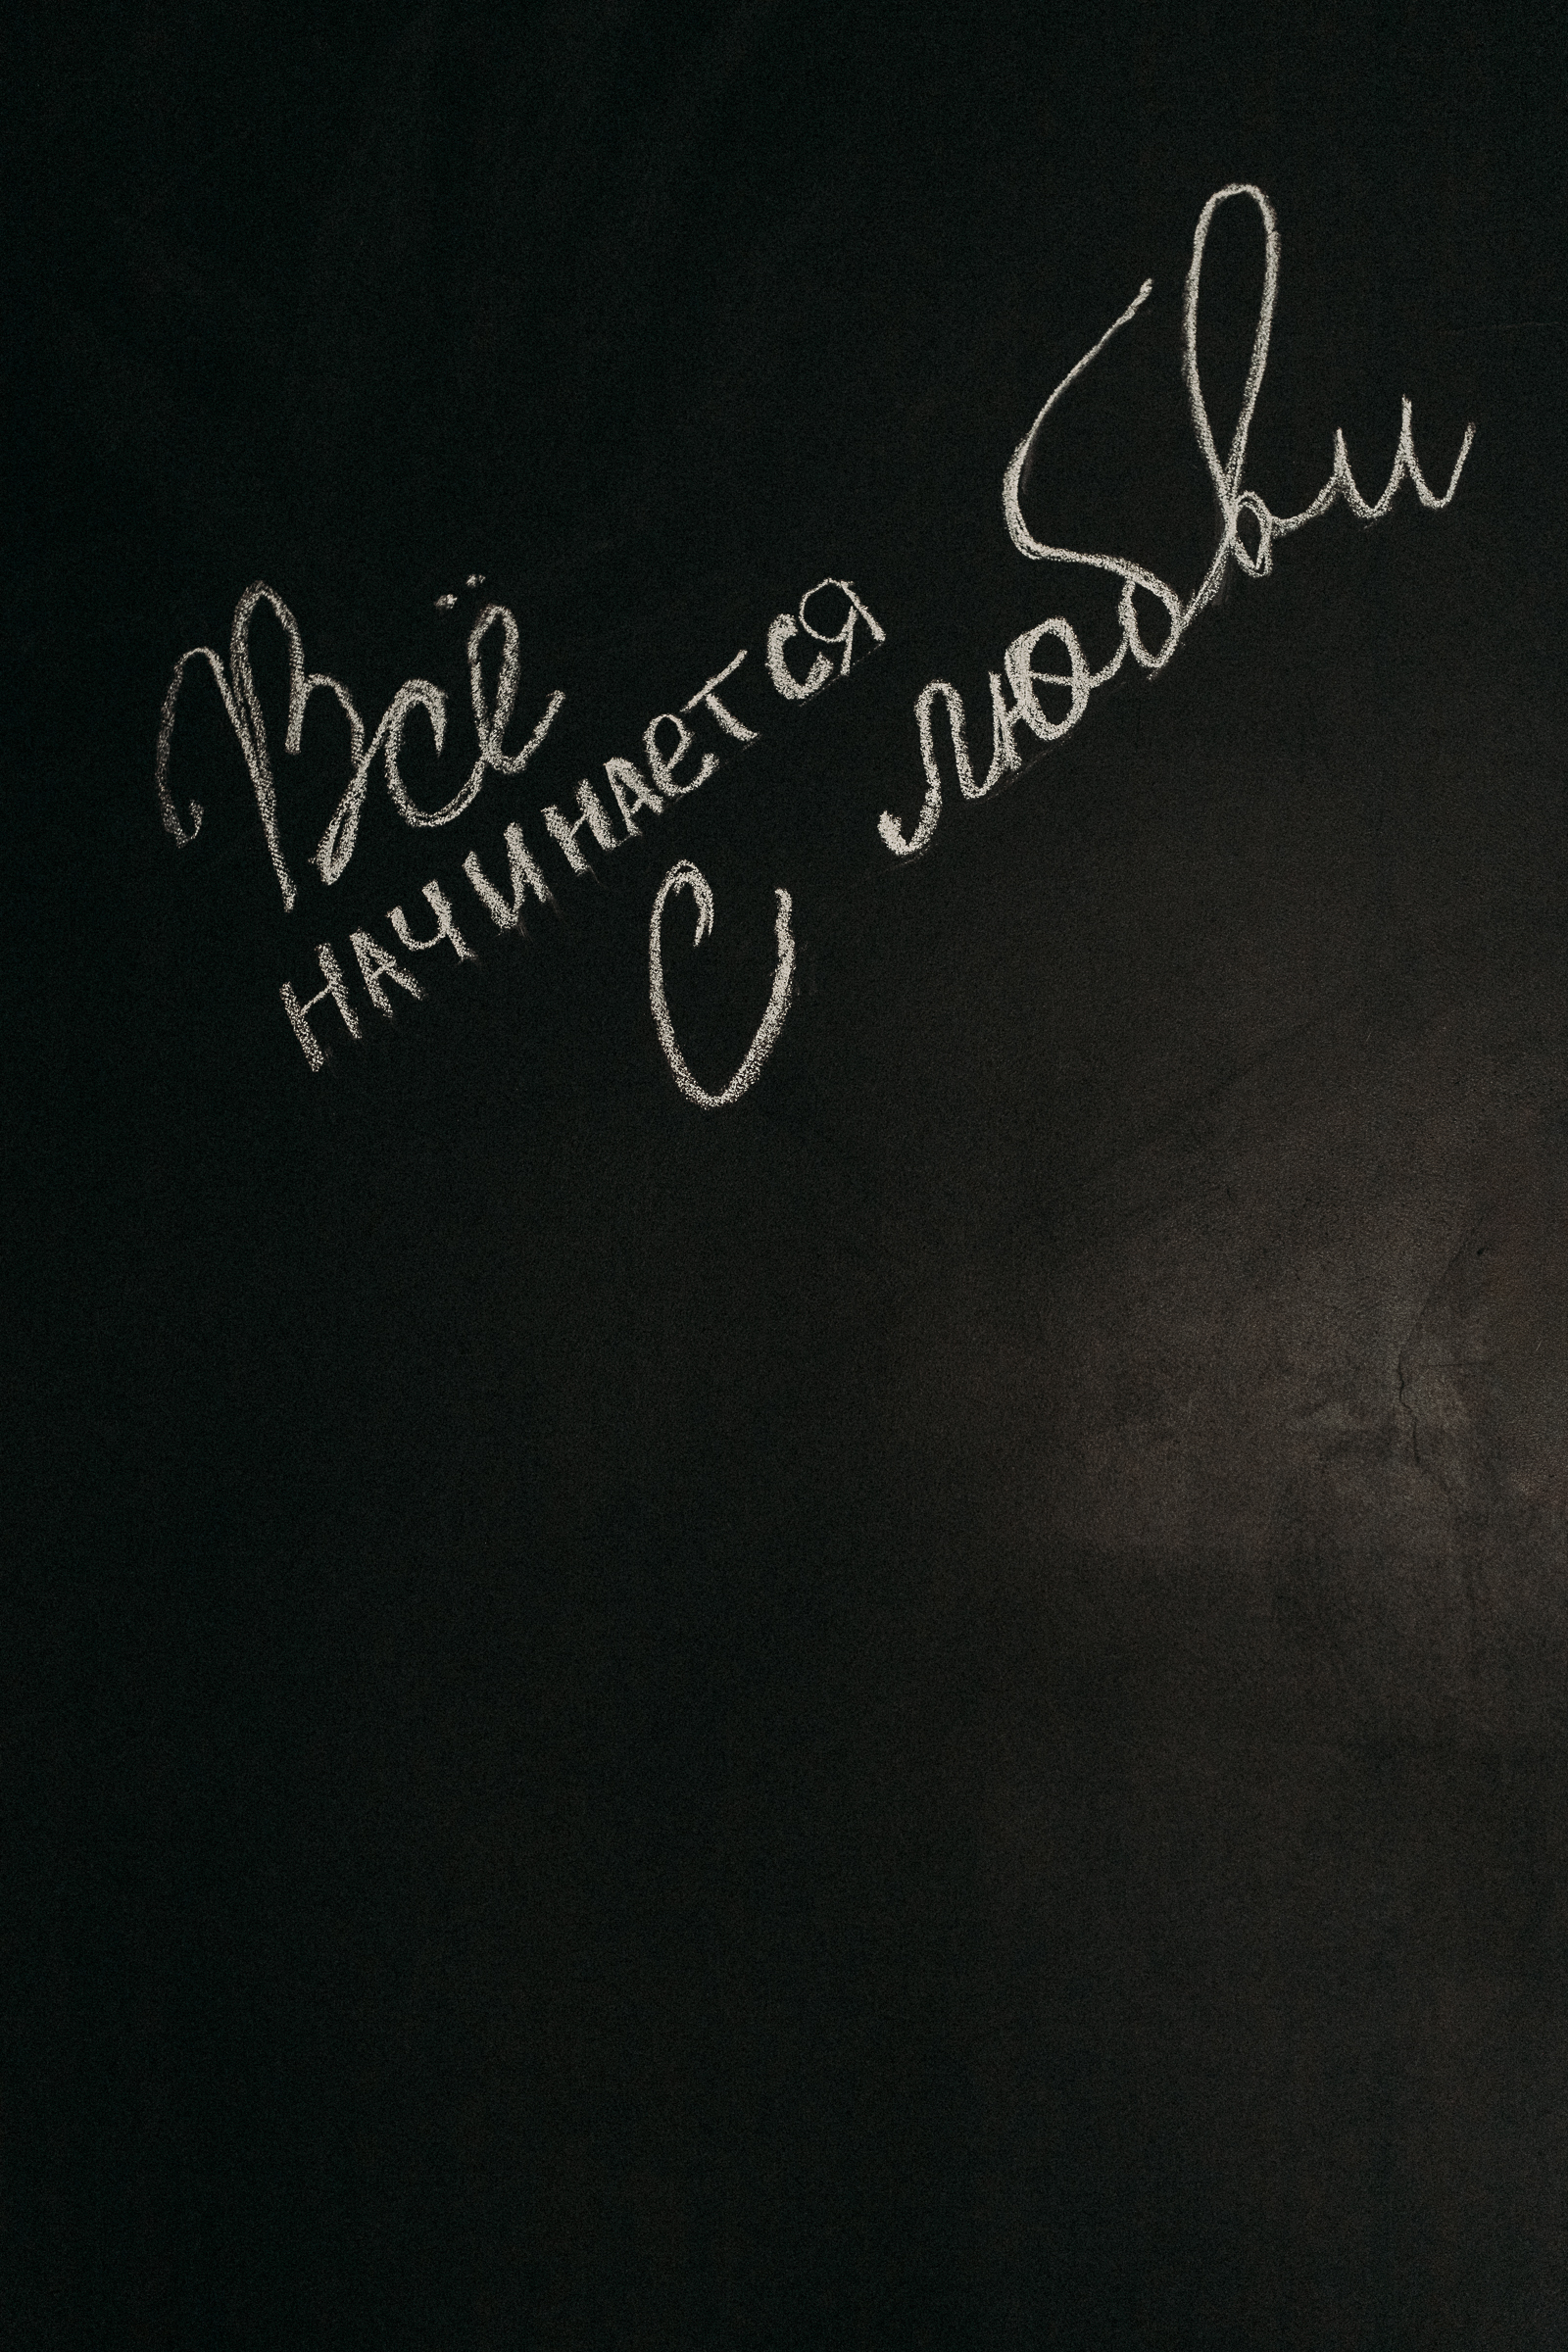 Всё
начинается
с любви